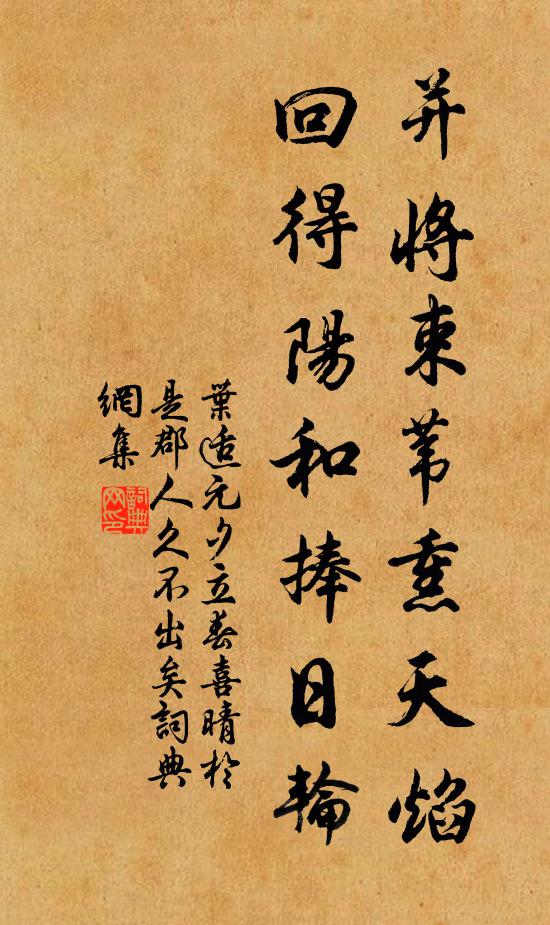 并將束葦熏天焰
回得陽和捧日輪
葉适元夕立春喜晴於
是郡人久不出矣詞典
網集
詞典網印